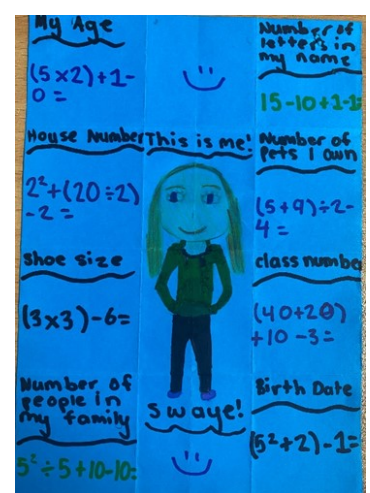 My Age
(5x2)+1-
0=
House Number
2²+(20÷2)
-2=
Shoe size
(3x3)-6=
Number of
people in
my family
5²÷5+10-10=
This is me!
Swaye!
Number of
letters in
my name
15-10+1-1=
Number of
Pets I own
(5+9)÷2-
4=
class number
(40+20)
+10-3=
Birth Date
(5²+2)-1=